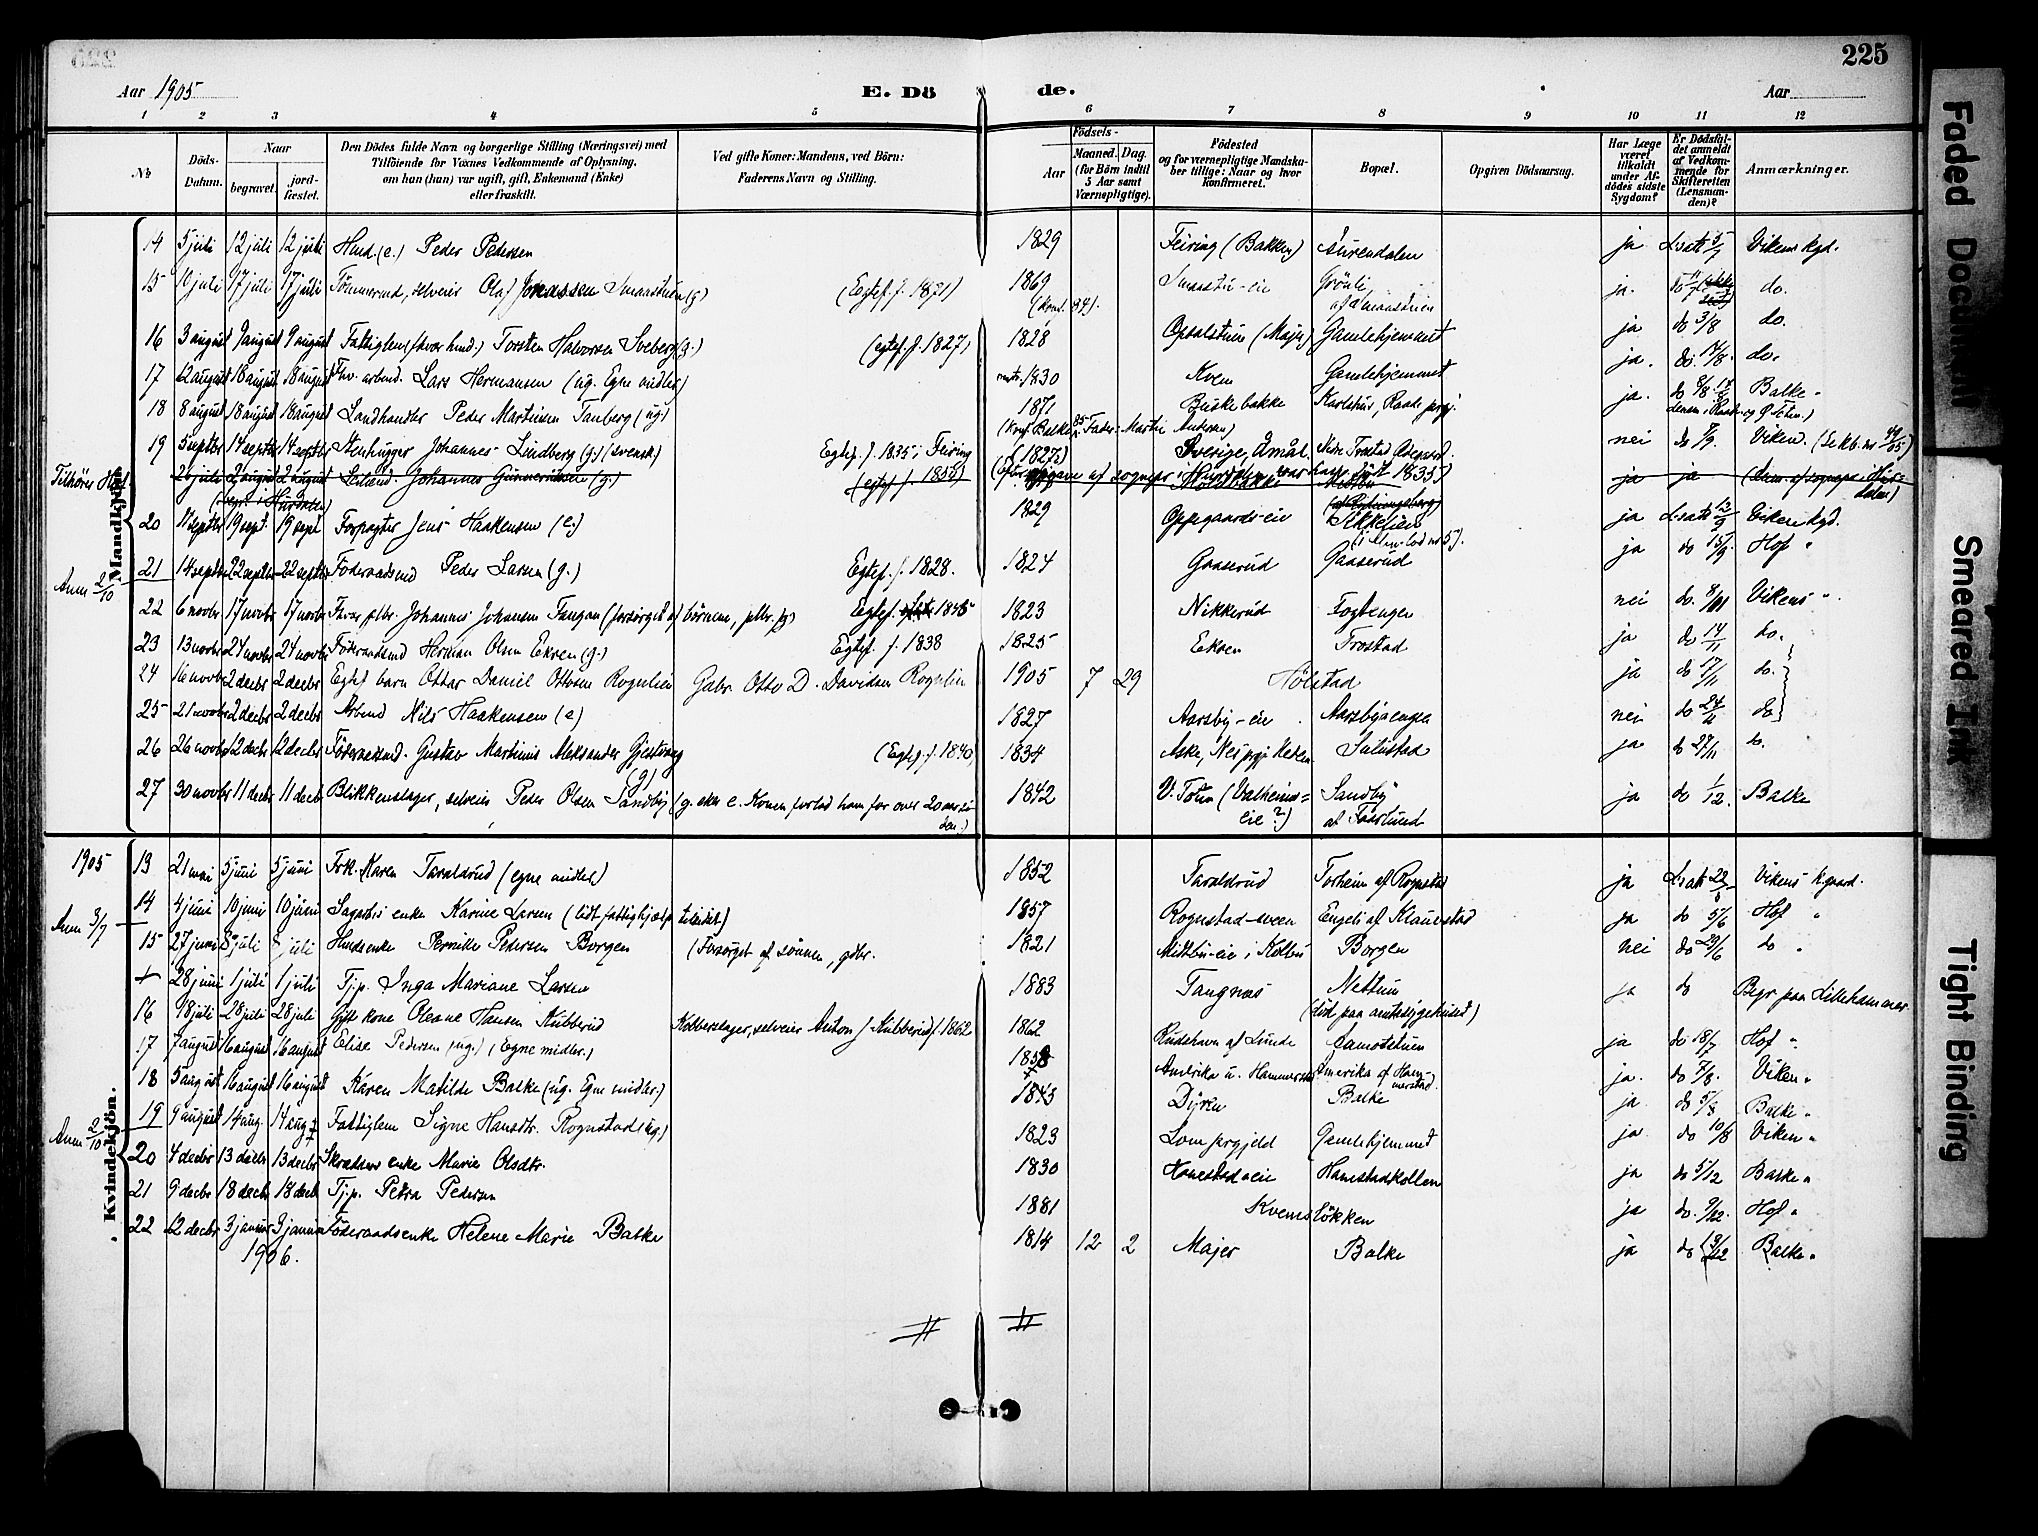 225
Aar 1905
E. Dö de.
Aar
1 2 3 4 5 6 7 8 9 10 11 12
No
Döds-Datum.
Naar
begravet.
jord-fæstet.
Den Dödes fulde Navn og borgerlige Stilling (Næringsvei) med Tilföiende for Voxnes Vedkommende af Oplysning, om han (hun) var ugift, gift, Enkemand (Enke) eller fraskilt.
Ved gifte Koner: Mandens, ved Börn: Faderens Navn og Stilling.
Födsels-
Aar
Maaned. Dag.
(for Börn indtil 5 Aar samt Værnepligtige).
Födested og for værnepligtige Mandskaber tillige: Naar og hvor konfirmeret.
Bopæl.
Opgiven Dödsaarsag.
Har Læge været tilkaldt under Afdödes sidste Sygdom?
Er Dödsfaldet anmeldt af Vedkommende for Skifteretten (Lensmanden)?
Anmærkninger.
Mandkjön.
14 5 juli 12 juli 12 juli Husd. (e.) Peder Pedersen 1829 Feiring (Bakken) Aurendalen ja L. att. 5/7 Vikens kgd.
15 10 juli 17 juli 17 juli Tömmermd, selveier Olaf Jonassen Smaastuen (g) (Egtef. f. 1871) 1869 Smaastu-eie Grönli, af Smaastuen ja. do 11/7 do.
(konf. 84).
16 3 august 9 august 9 august Fattiglem (forhv. husd.) Torsten Halvorsen Sveberg (g.) (egtef. f. 1827) 1828 Opsalstuen (Majer) Gamlehjemmet ja do 3/8 do.
17 12 august 18 august 18 august Fhv. arbmd. Lars Hermansen (ug. Egne midler) 1830 Kvem Gamlehjemmet ja. do. 14/8 do.
18 8 august 18 august 18 august Landhandler Peder Martinsen Tanberg (ug) 1871 Buskebakke Karlshus, Raade prgj. ja. do Balke "
(konf. Balke 85. Fader: Martin Andersen)
19 5 septbr 14 septbr 14 septbr Stenhugger Johannes Lindberg (g.) (svensk.) Egtef. f. 1835 i Feiring 1827 Sverige, Åmål. nei do 7/9. Viken. (Se kb. nr 49/05)
Tilhörer Hurd.
26 juli 2 august 2 august Selveid. Johannes Gunnersen (g.) (egtef. f. 1850) ja ja
(begr. i Hurdalen)
20 11 septbr 19 sept. 19 sept Forpagter Jens Haakensen (e.) 1829 Oppegaards-eie Sikkelien ja L. att. 12/9 Vikens kgd.
21 14 septbr 22 septbr 22 septbr Föderaadsmd Peder Larsen (g.) Egtef. f. 1828. 1824 Gaaserud Gaaserud ja do 15/9 Hof "
Anm 2/10
22 6 novbr 17 novbr 17 novbr Fhver. plbr. Johannes Johansen Tangen (forsörget af börnene, plbr. g) Egtef. f. 1845 1823 Nikkerud Fogtengen nei do. 8/11 Vikens "
23 13 novbr 24 novbr 24 novbr Föderaadsmd Herman Olsen Ekren (g.) Egtef. f. 1838 1825 Ekren Trostad ja do 14/11 do.
24 16 novbr 2 decbr 2 decbr Egtef barn Ottar Daniel Ottosen Rognlien Gabr. Otto D. Davidsen Rognlien 1905 7 29 Hölstad ja do 17/11 do.
25 21 novbr 2 decbr 2 decbr Arbmd Nils Haakensen (e) 1827 Aarsby-eie Aarsbyengen nei do 24/11 do
26 26 novbr 12 decbr 12 decbr Föderaadsmd. Gustav Martinus Aleksander Gjestvang (g) (Egtef. f. 1840) 1834 Aske, Nes prgj. Hedem. Julustad ja do 27/11 do.
27 30 novbr 11 decbr 11 decbr Blikkenslager, selveier Peder Olsen Sandby (g. eller e. Konen forlod ham for over 20 aar siden.) 1842 V. Toten (Valhemseie?) Sandby af Faarlund ja do 1/12. Balke
Kvindekjön.
1905
13 21 mai 5 juni 5 juni Frk. Karen Taraldrud (egne midler) 1852 Taraldrud Torheim af Rognstad ja L. att 22/5 Vikens k.gaard.
14 4 juni 10 juni 10 juni Sagarbs enke Karine Larsen (lidt fattighjælp tilstået) 1857 Rognstad-sveen Engeli af Klauvstad ja do 5/6 Hof "
Anm 3/7
15 27 juni 8 juli 8 juli Husdsenke Pernille Pedersen Borgen (Forsörget af sönnen, gdbr. 1821 Midtbu-eie i Kolbu Borgen nei do 29/6 do "
+ 28 juni 1 juli 1 juli Tj.p. Inga Mariane Larsen 1883 Tangnæs Nettum ja do Begr. paa Lillehammer.
(död paa amtssygehuset)
16 18 juli 28 juli 28 juli Gift kone Oleane Hansen Kubberud Kobberslager, selveier Anton J. Kubberud f. 1862 1862 Rudshaven af Lunde Samodstuen ja do 18/7 Hof "
17 7 august 16 august 16 august Elise Pedersen (ug.) (Egne midler.) 1858 Amerika u. Hammerstad Amerika af Hammerstad ja. do 7/8. Viken "
18 5 august 16 august 16 august Karen Matilde Balke (ug. Egne midler.) 1843 Dyren Balke ja do 5/8 Balke "
19 9 august 14 aug. 14 aug Fattiglem Signe Hansdtr. Rognstad (ug.) 1823 Lom prgjeld Gamlehjemmet ja do 10/8 Viken "
Anm 2/10
20 4 decbr 13 decbr 13 decbr Skrædders enke Marie Olsdtr. 1830 Hanestad eie Hanestadkollen ja do 5/12 Balke "
21 9 decbr 18 decb 18 decb Tj.p. Petra Pedersen 1881 Kvemslökken ja do. 9/12. Hof "
22 12 decbr 3 januar 3 januar Föderaadsenke Helene Marie Balke 1814 12 2 Majer Balke ja do 13/12 Balke "
1906.
Faded Document
Smeared Ink
Tight Binding